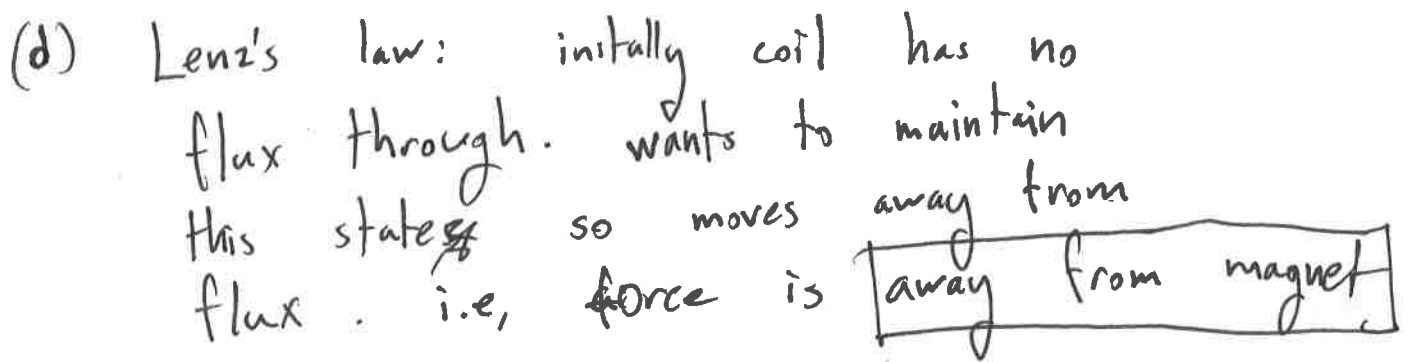 (d) Lenz's law: initally coil has no
flux through. wants to maintain
this state so moves away from
flux. i.e, force is away from magnet